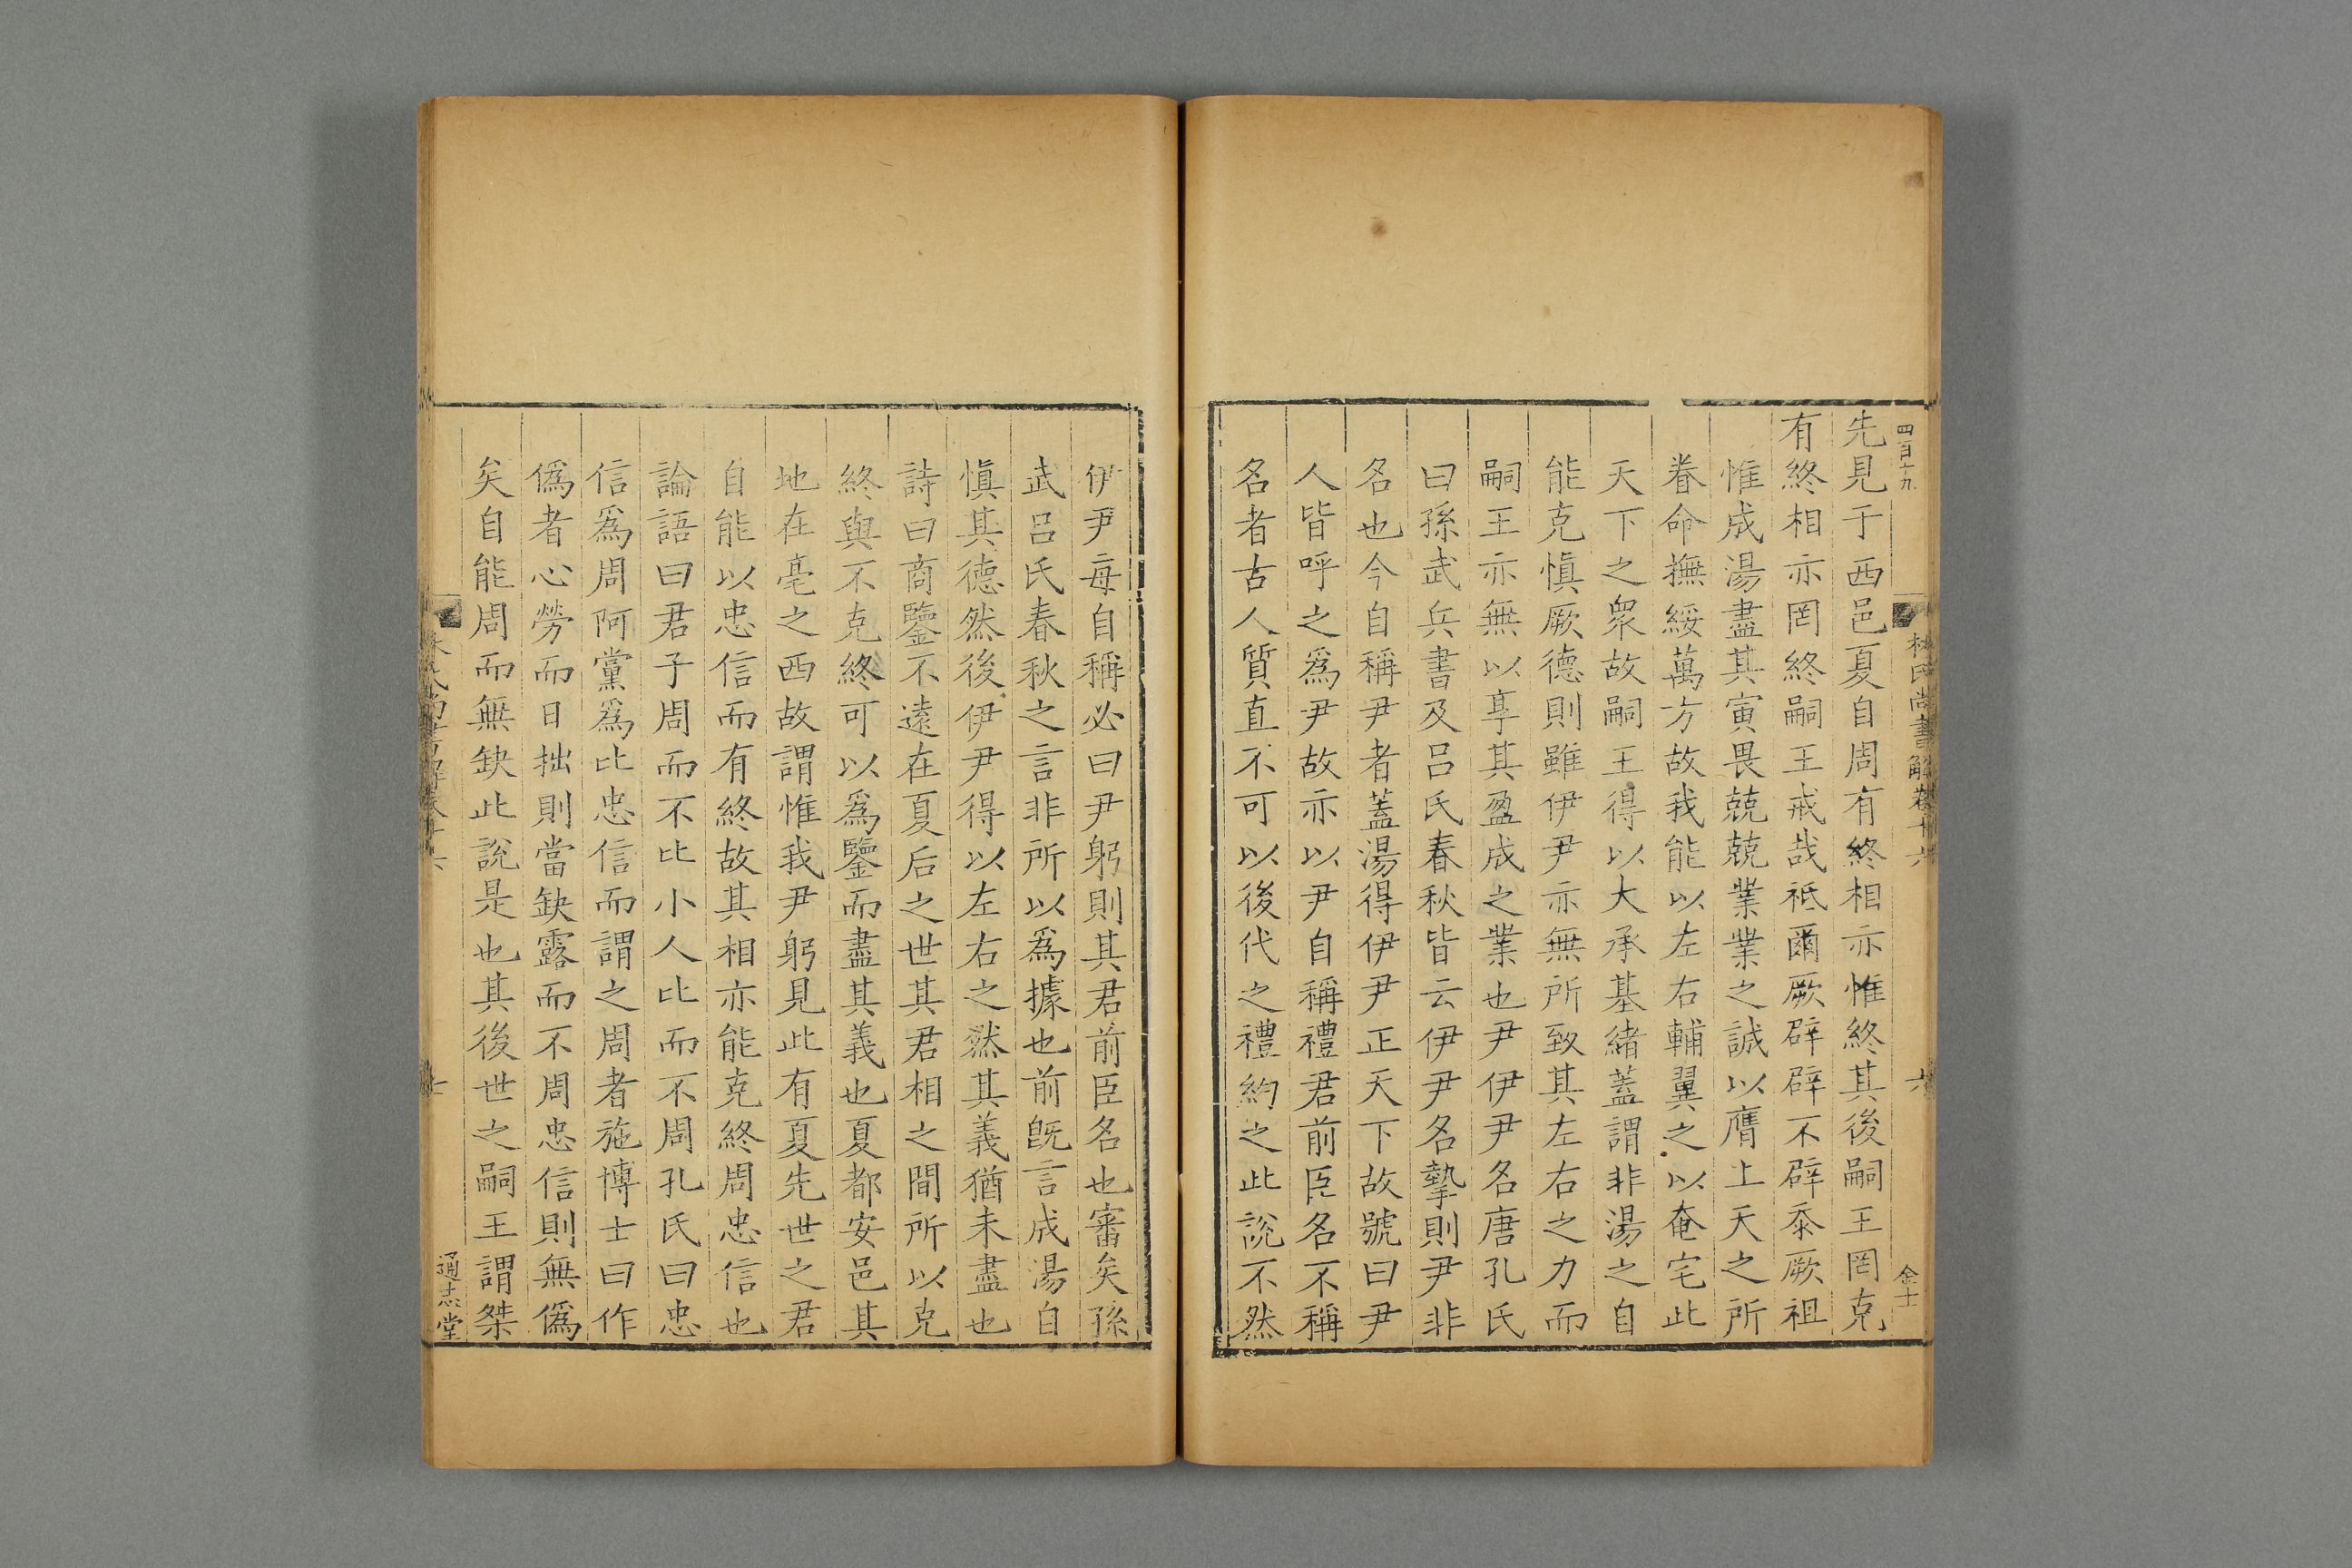 四百十九
林氏尚書解卷十六
六
金士
先見于西邑夏自周有終相亦惟終其後嗣王罔克
有終相亦罔終嗣王戒哉祗爾厥辟辟不辟忝厥祖
惟成湯盡其寅畏兢兢業業之誠以膺上天之所
眷命撫綏萬方故我能以左右輔翼之以奄宅此
天下之衆故嗣王得以大承基緒蓋謂非湯之自
能克愼厥德則雖伊尹亦無所致其左右之力而
嗣王亦無以享其盈成之業也尹伊尹名唐孔氏
曰孫武兵書及呂氏春秋皆云伊尹名摯則尹非
名也今自稱尹者蓋湯得伊尹正天下故號曰尹
人皆呼之爲尹故亦以尹自稱禮君前臣名不稱
名者古人質直不可以後代之禮約之此說不然
伊尹每自稱必曰尹躬則其君前臣名也審矣孫
武呂氏春秋之言非所以爲據也前旣言成湯自
愼其德然後伊尹得以左右之然其義猶未盡也
詩曰商鑒不遠在夏后之世其君相之間所以克
終與不克終可以爲鑒而盡其義也夏都安邑其
地在亳之西故謂惟我尹躬見此有夏先世之君
自能以忠信而有終故其相亦能克終周忠信也
論語曰君子周而不比小人比而不周孔氏曰忠
信爲周阿黨爲比忠信而謂之周者施博士曰作
僞者心勞而日拙則當缺露而不周忠信則無僞
矣自能周而無缺此說是也其後世之嗣王謂桀
通志堂